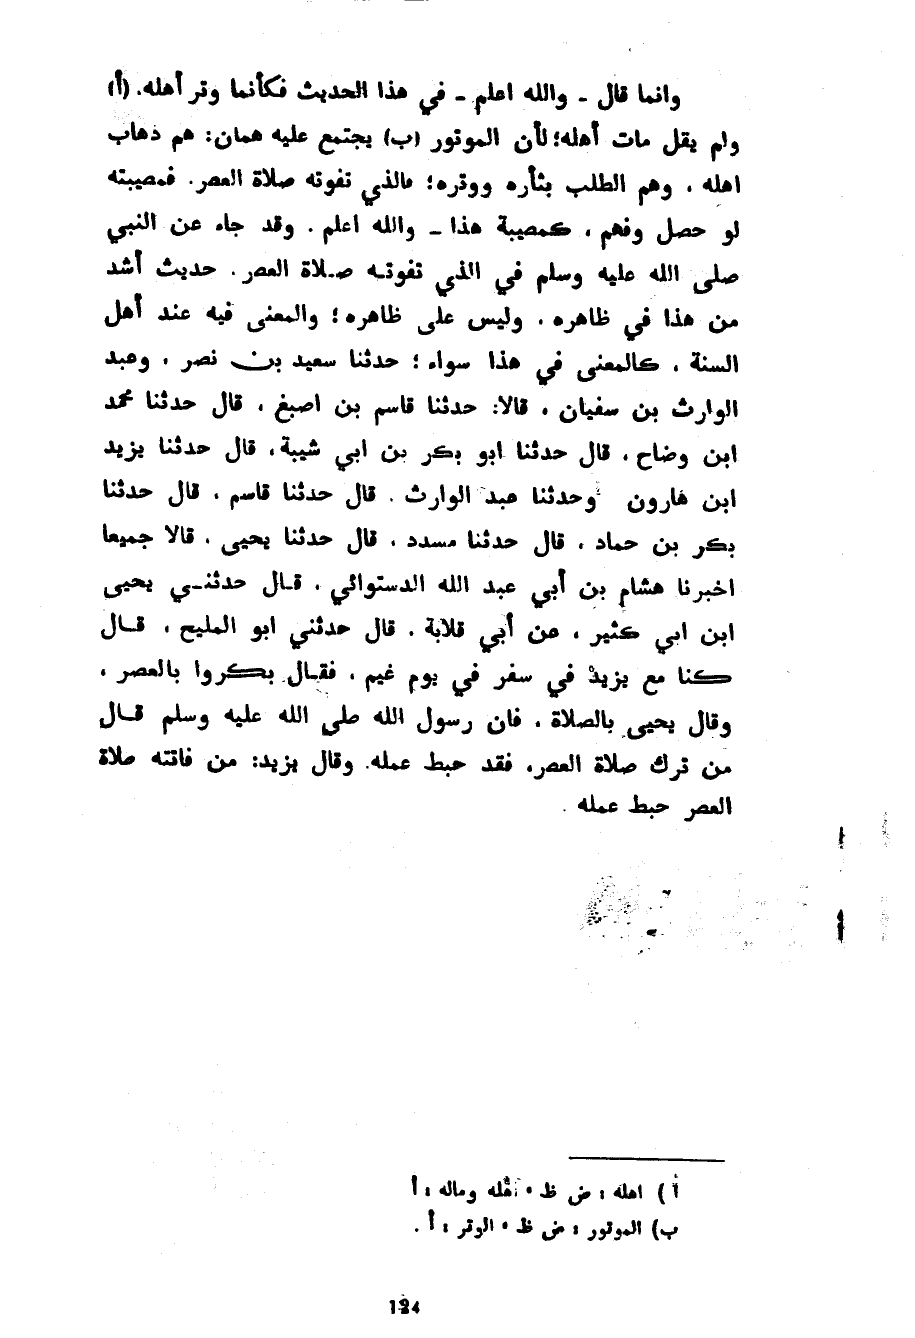 وانما قال ـ والله اعلم ـ في هذا الحديث فكأنما وتر أهله. (أ)
ولم يقل مات أهله؛ لأن الموتور (ب) يجتمع عليه همان: هم ذهاب
اهله ، وهم الطلب بثأره ووتره؛ فالذي تفوته صلاة العصر. فمصيبته
لو حصل وفهم ، كمصيبة هذا ـ والله اعلم . وقد جاء عن النبي
صلى الله عليه وسلم في الذي تفوته صلاة العصر . حديث أشد
من هذا في ظاهره ، وليس على ظاهره؛ والمعنى فيه عند أهل
السنة ، كالمعنى في هذا سواء ؛ حدثنا سعيد بن نصر ، وعبد
الوارث بن سفيان ، قالا: حدثنا قاسم بن اصبغ ، قال حدثنا محمد
ابن وضاح ، قال حدثنا ابو بكر بن ابي شيبة، قال حدثنا يزيد
ابن هارون وحدثنا عبد الوارث . قال حدثنا قاسم ، قال حدثنا
بكر بن حماد ، قال حدثنا مسدد ، قال حدثنا يحيى ، قالا جميعا
اخبرنا هشام بن أبي عبد الله الدستوائي ، قال حدثني يحيى
ابن ابي كثير ، عن أبي قلابة . قال حدثني ابو المليح ، قال
كنا مع يزيد في سفر في يوم غيم ، فقال بكروا بالعصر ،
وقال يحيى بالصلاة ، فان رسول الله صلى الله عليه وسلم قال
من ترك صلاة العصر، فقد حبط عمله. وقال يزيد: من فاتته صلاة
العصر حبط عمله .
أ ) اهله : ض ظ • أهله وماله : أ
ب) الموتور : ض ظ • الوتر : أ .
124